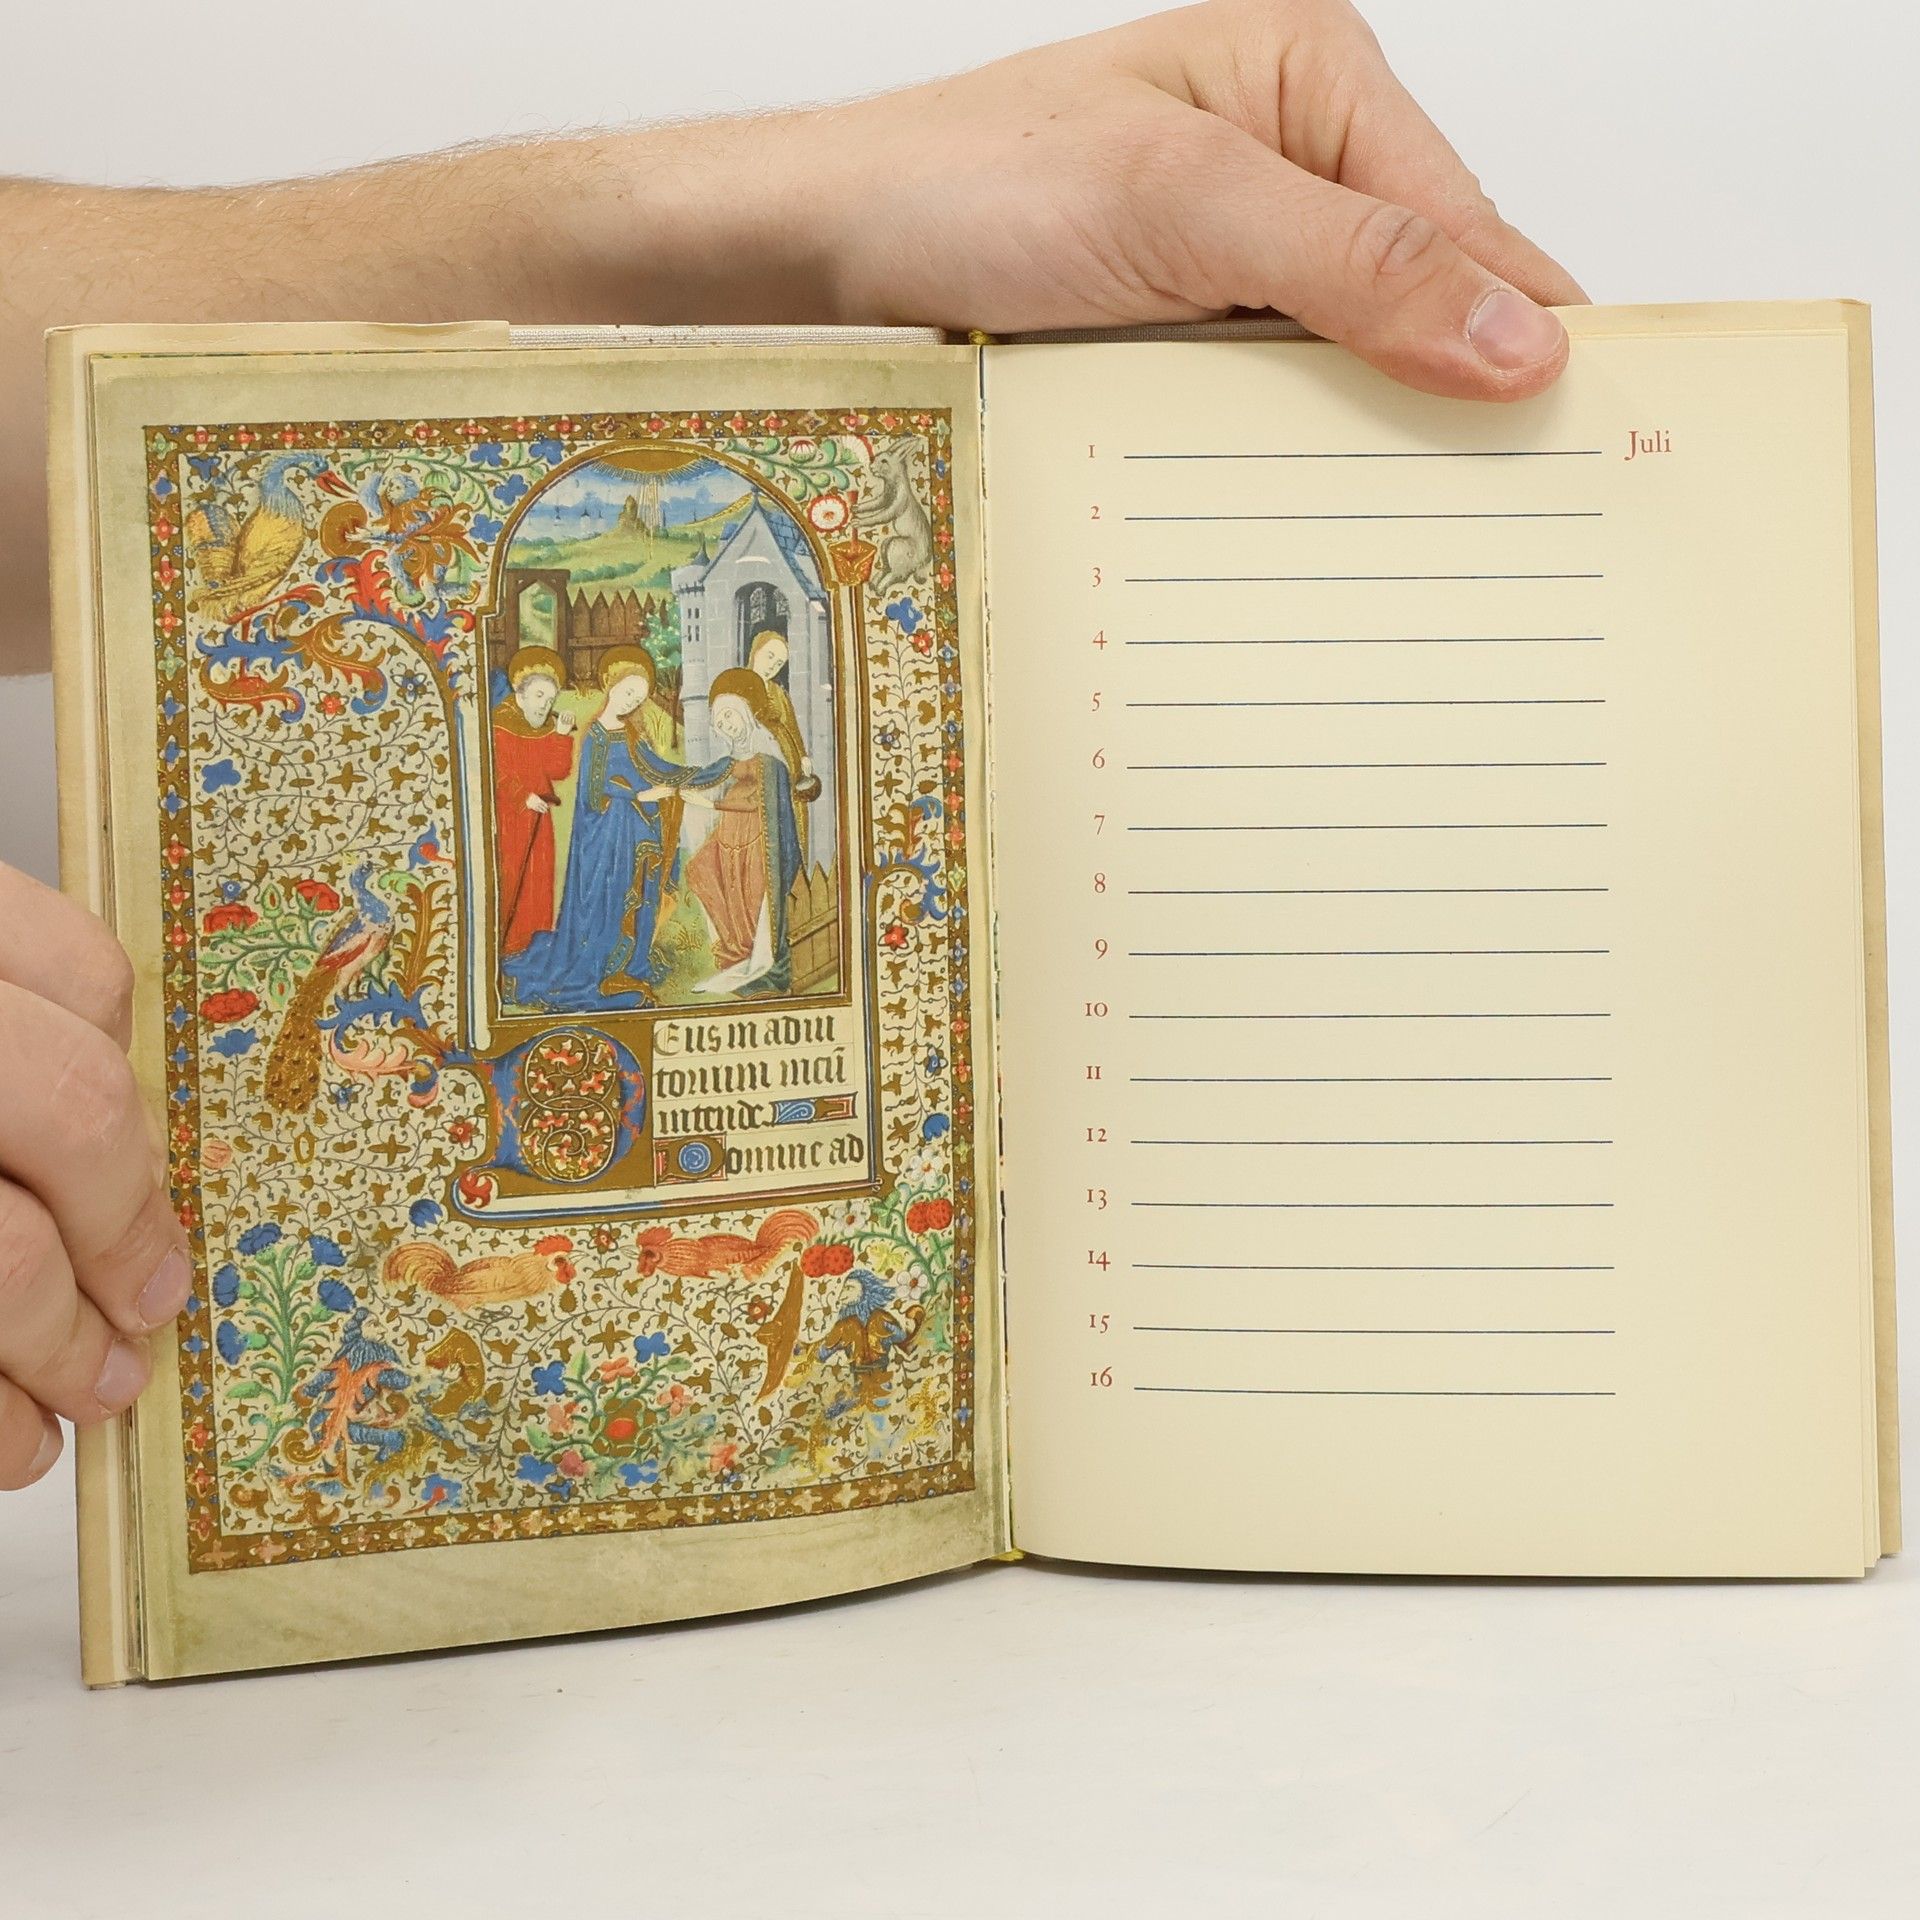 Eus in adiu
torium meū
intende.
Domine ad
1 Juli
2
3
4
5
6
7
8
9
10
11
12
13
14
15
16